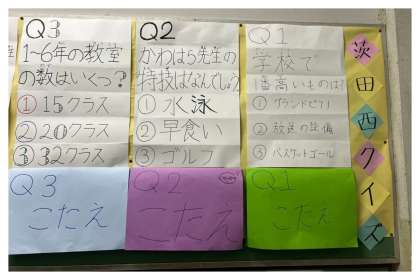 淡田西クイズ
Q1
学校で
1番高いものは?
① グランドピアノ
② 放送の設備
③ バスケットゴール
Q1
こたえ
Q2
かわはら先生の
特技はなんでしょう
① 水泳
② 早食い
③ ゴルフ
Q2
こたえ
Q3
1~6年の教室
の数はいくつ?
① 15クラス
② 20クラス
③ 32クラス
Q3
こたえ